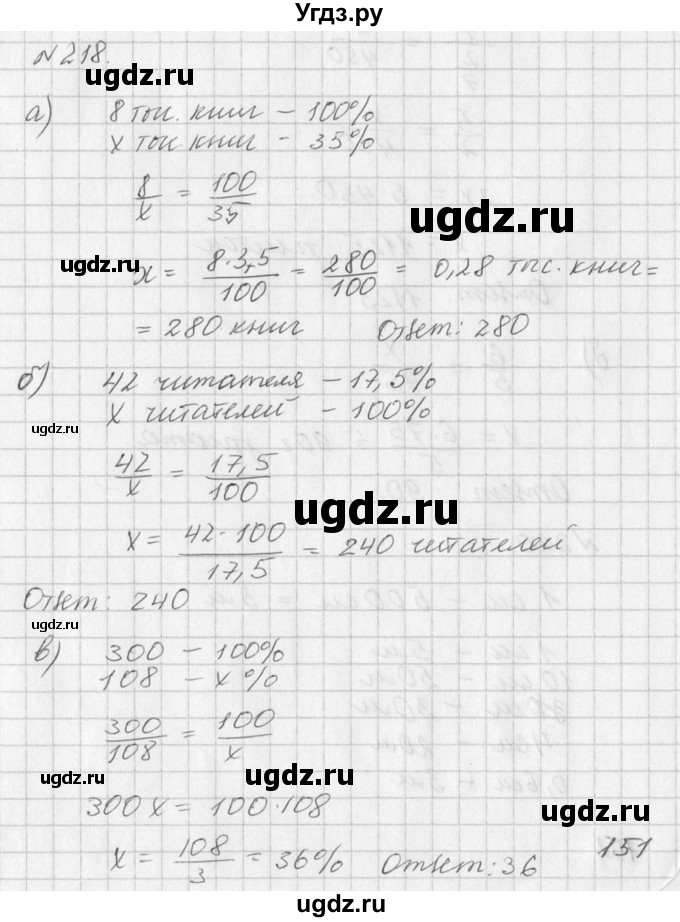 Угдз.ру
№218.
ugdz.ru
а) 8 тыс. книг – 100%
х тыс книг – 35%
8/х = 100/35
ugdz.ru
х = 8·3,5/100 = 280/100 = 0,28 тыс. книг =
= 280 книг Ответ: 280
б) 42 читателя – 17,5%
х читателей – 100%
ugdz.ru
42/х = 17,5/100
ugdz.ru
х = 42·100/17,5 = 240 читателей
Ответ: 240
ugdz.ru
в) 300 – 100%
108 – х%
300/108 = 100/х
ugdz.ru
300х = 100·108
ugdz.ru
х = 108/3 = 36% Ответ: 36
151
ugdz.ru